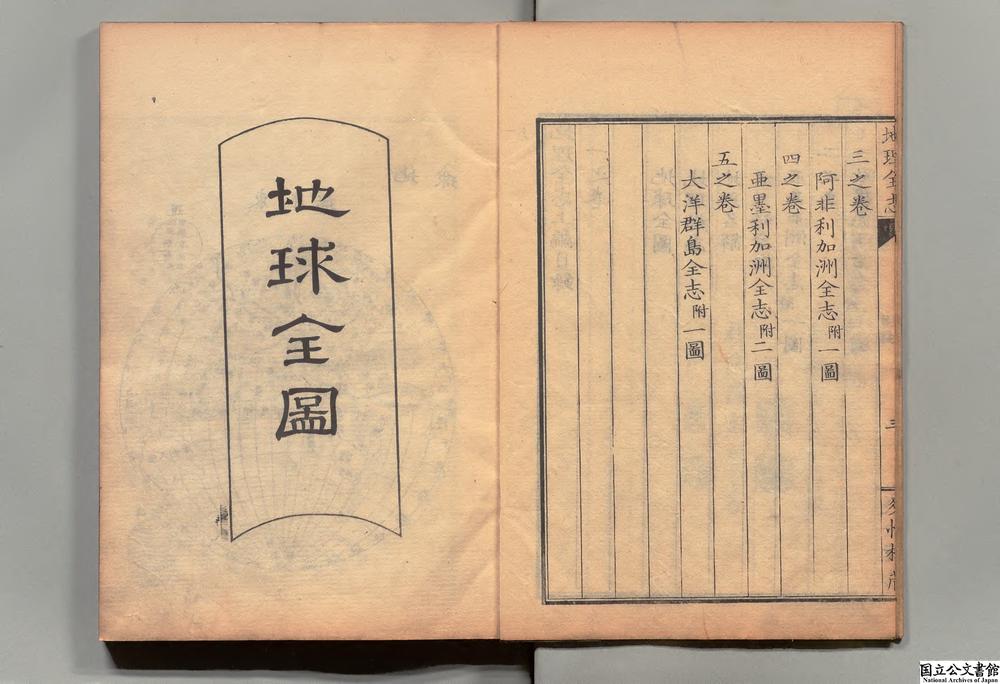 地理全志
三
三之卷
阿非利加洲全志附一圖
四之卷
亜墨利加洲全志附二圖
五之卷
大洋群島全志附一圖
地球全圖
国立公文書館
National Archives of Japan